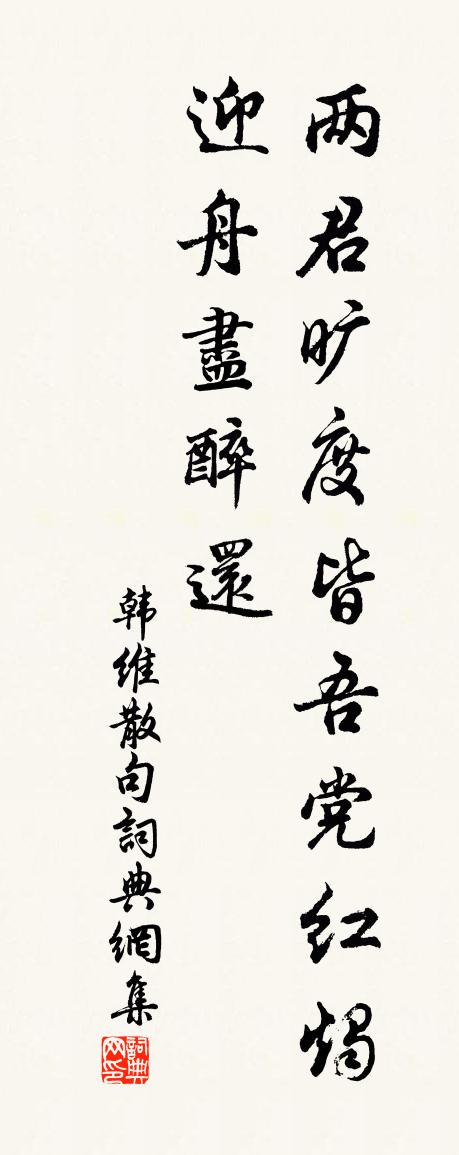 两君旷度皆吾党红烛
迎舟盡醉還
韩维散句詞典網集
詞典网印